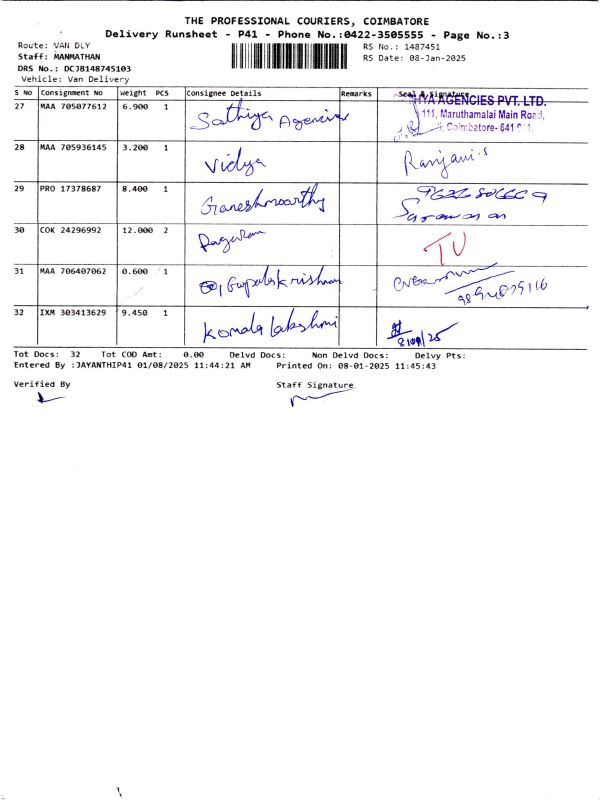 THE PROFESSIONAL COURIERS, COIMBATORE
Delivery Runsheet - P41 - Phone No.:0422-3505555 - Page No.:3
Route: VAN DLY
RS No.: 1487451
Staff: MANMATHAN
RS Date: 08-Jan-2025
DRS No.: DCJB148745103
Vehicle: Van Delivery
S NO Consignment No Weight PCS Consignee Details Remarks Seal & Signature
27 MAA 705077612 6.900 1 Sathiya Agencies
AGENCIES PVT. LTD.
111, Maruthamalai Main Road,
Coimbatore- 641
28 MAA 705936145 3.200 1 Vidya Ranjani.s
29 PRO 17378687 8.400 1 Ganeshmoorthy
Saravanan
30 COK 24296992 12.000 2 TV
31 MAA 706407062 0.600 1 Gopalakrishnan
32 IXM 303413629 9.450 1 Komala lakshmi
8/01/25
Tot Docs: 32 Tot COD Amt: 0.00 Delvd Docs: Non Delvd Docs: Delvy Pts:
Entered By :JAYANTHIP41 01/08/2025 11:44:21 AM Printed On: 08-01-2025 11:45:43
Verified By Staff Signature